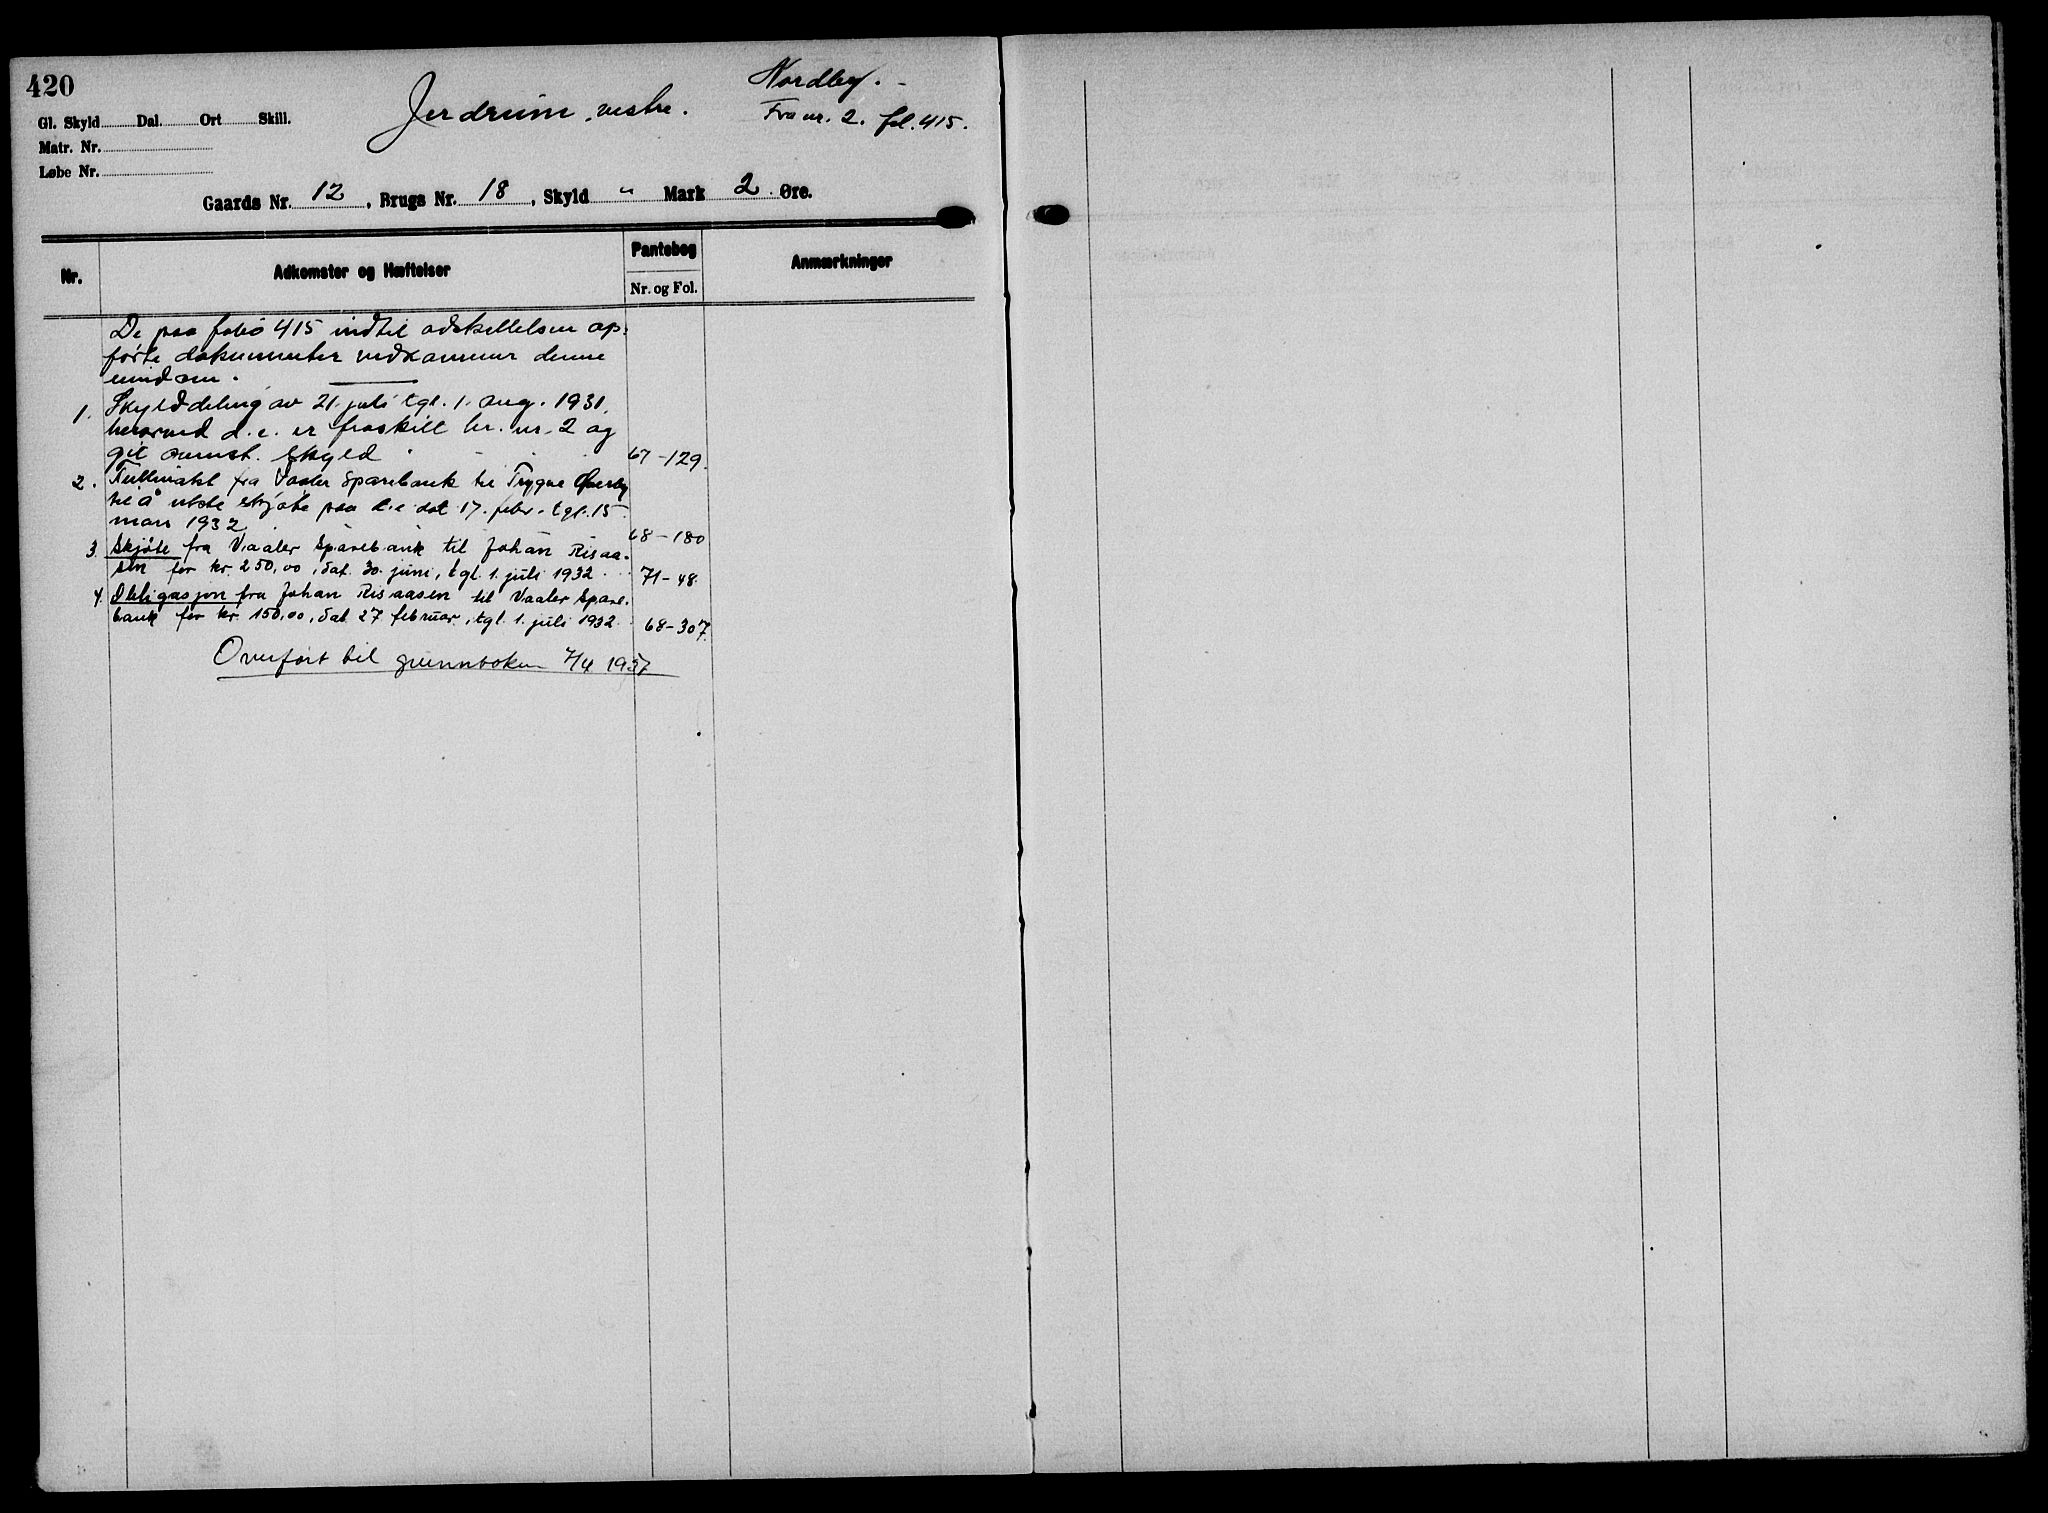 420
Jerdrum, vestre.
Nordby.
Fra nr. 2. fol. 415.
Gl. Skyld Dal. Ort Skill.
Matr. Nr.
Løbe Nr.
Gaards Nr. 12, Brugs Nr. 18, Skyld " Mark 2 Øre.
Nr. Adkomster og Hæftelser Pantebog Nr. og Fol. Anmærkninger
De paa folio 415 indtil adskillelsen op-
førte dokumenter vedkommer denne
eiendom.
1. Skylddeling av 21. juli tgl. 1. aug. 1931,
hvorved d. e. er fraskilt br. nr. 2 og
git ovenst. skyld 67-129.
2. Fullmakt fra Vaaler Sparebank til Trygve Overby
til å utste skjøte paa d.e dat 17. febr. tgl. 15
mars 1932 68-180
3. Skjøte fra Vaaler Sparebank til Johan Risaa-
sen for kr. 250,00, dat. 30. juni, tgl. 1. juli 1932 71-48.
4. Obligasjon fra Johan Risaasen til Vaaler Spare-
bank for kr. 150,00, dat 27 februar, tgl. 1. juli 1932 68-307.
Overført til grunnboken 7/4 1957